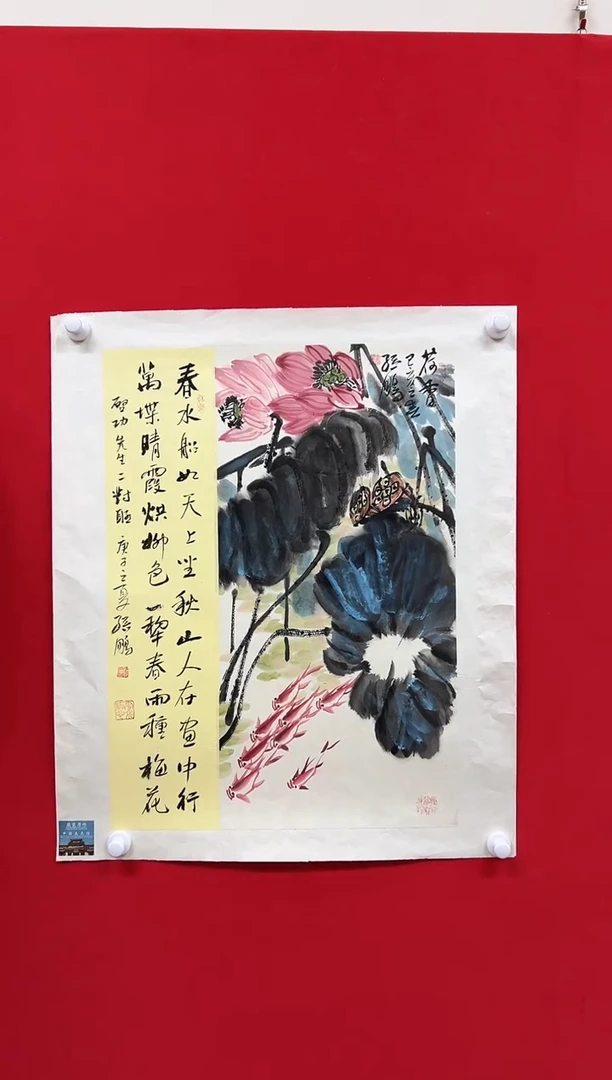 春水船如天上坐秋山人在畫中行
萬堞晴霞烘柳色一犂春雨種梅花
啓功先生二對聯 庚子之夏 孫鵬
荷香
己亥之夏
孫鵬